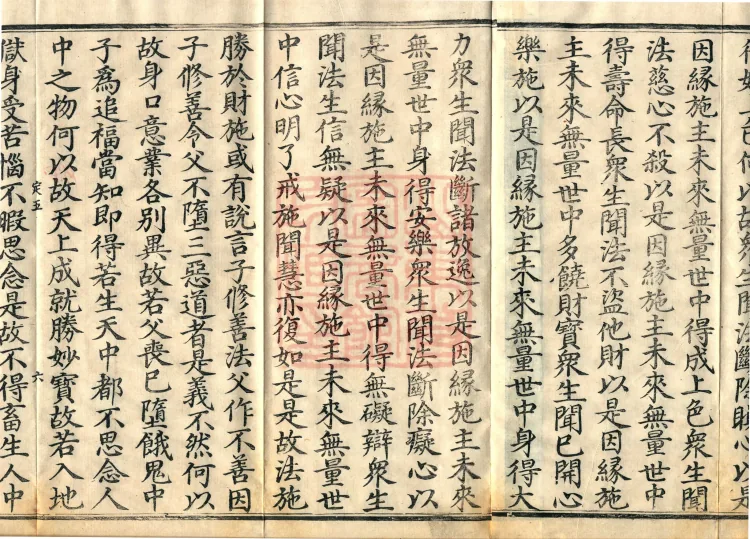 何以故衆生聞法斷除瞋心以是
因緣施主未來無量世中得成上色衆生聞
法慈心不殺以是因緣施主未來無量世中
得壽命長衆生聞法不盜他財以是因緣施
主未來無量世中多饒財寶衆生聞已開心
樂施以是因緣施主未來無量世中身得大
力衆生聞法斷諸放逸以是因緣施主未來
無量世中身得安樂衆生聞法斷除癡心以
是因緣施主未來無量世中得無礙辯衆生
聞法生信無疑以是因緣施主未來無量世
中信心明了戒施聞慧亦復如是是故法施
勝於財施或有說言子修善法父作不善因
子修善令父不墮三惡道者是義不然何以
故身口意業各別異故若父喪已墮餓鬼中
子爲追福當知即得若生天中都不思念人
中之物何以故天上成就勝妙寶故若入地
定五 六
獄身受苦惱不暇思念是故不得畜生人中